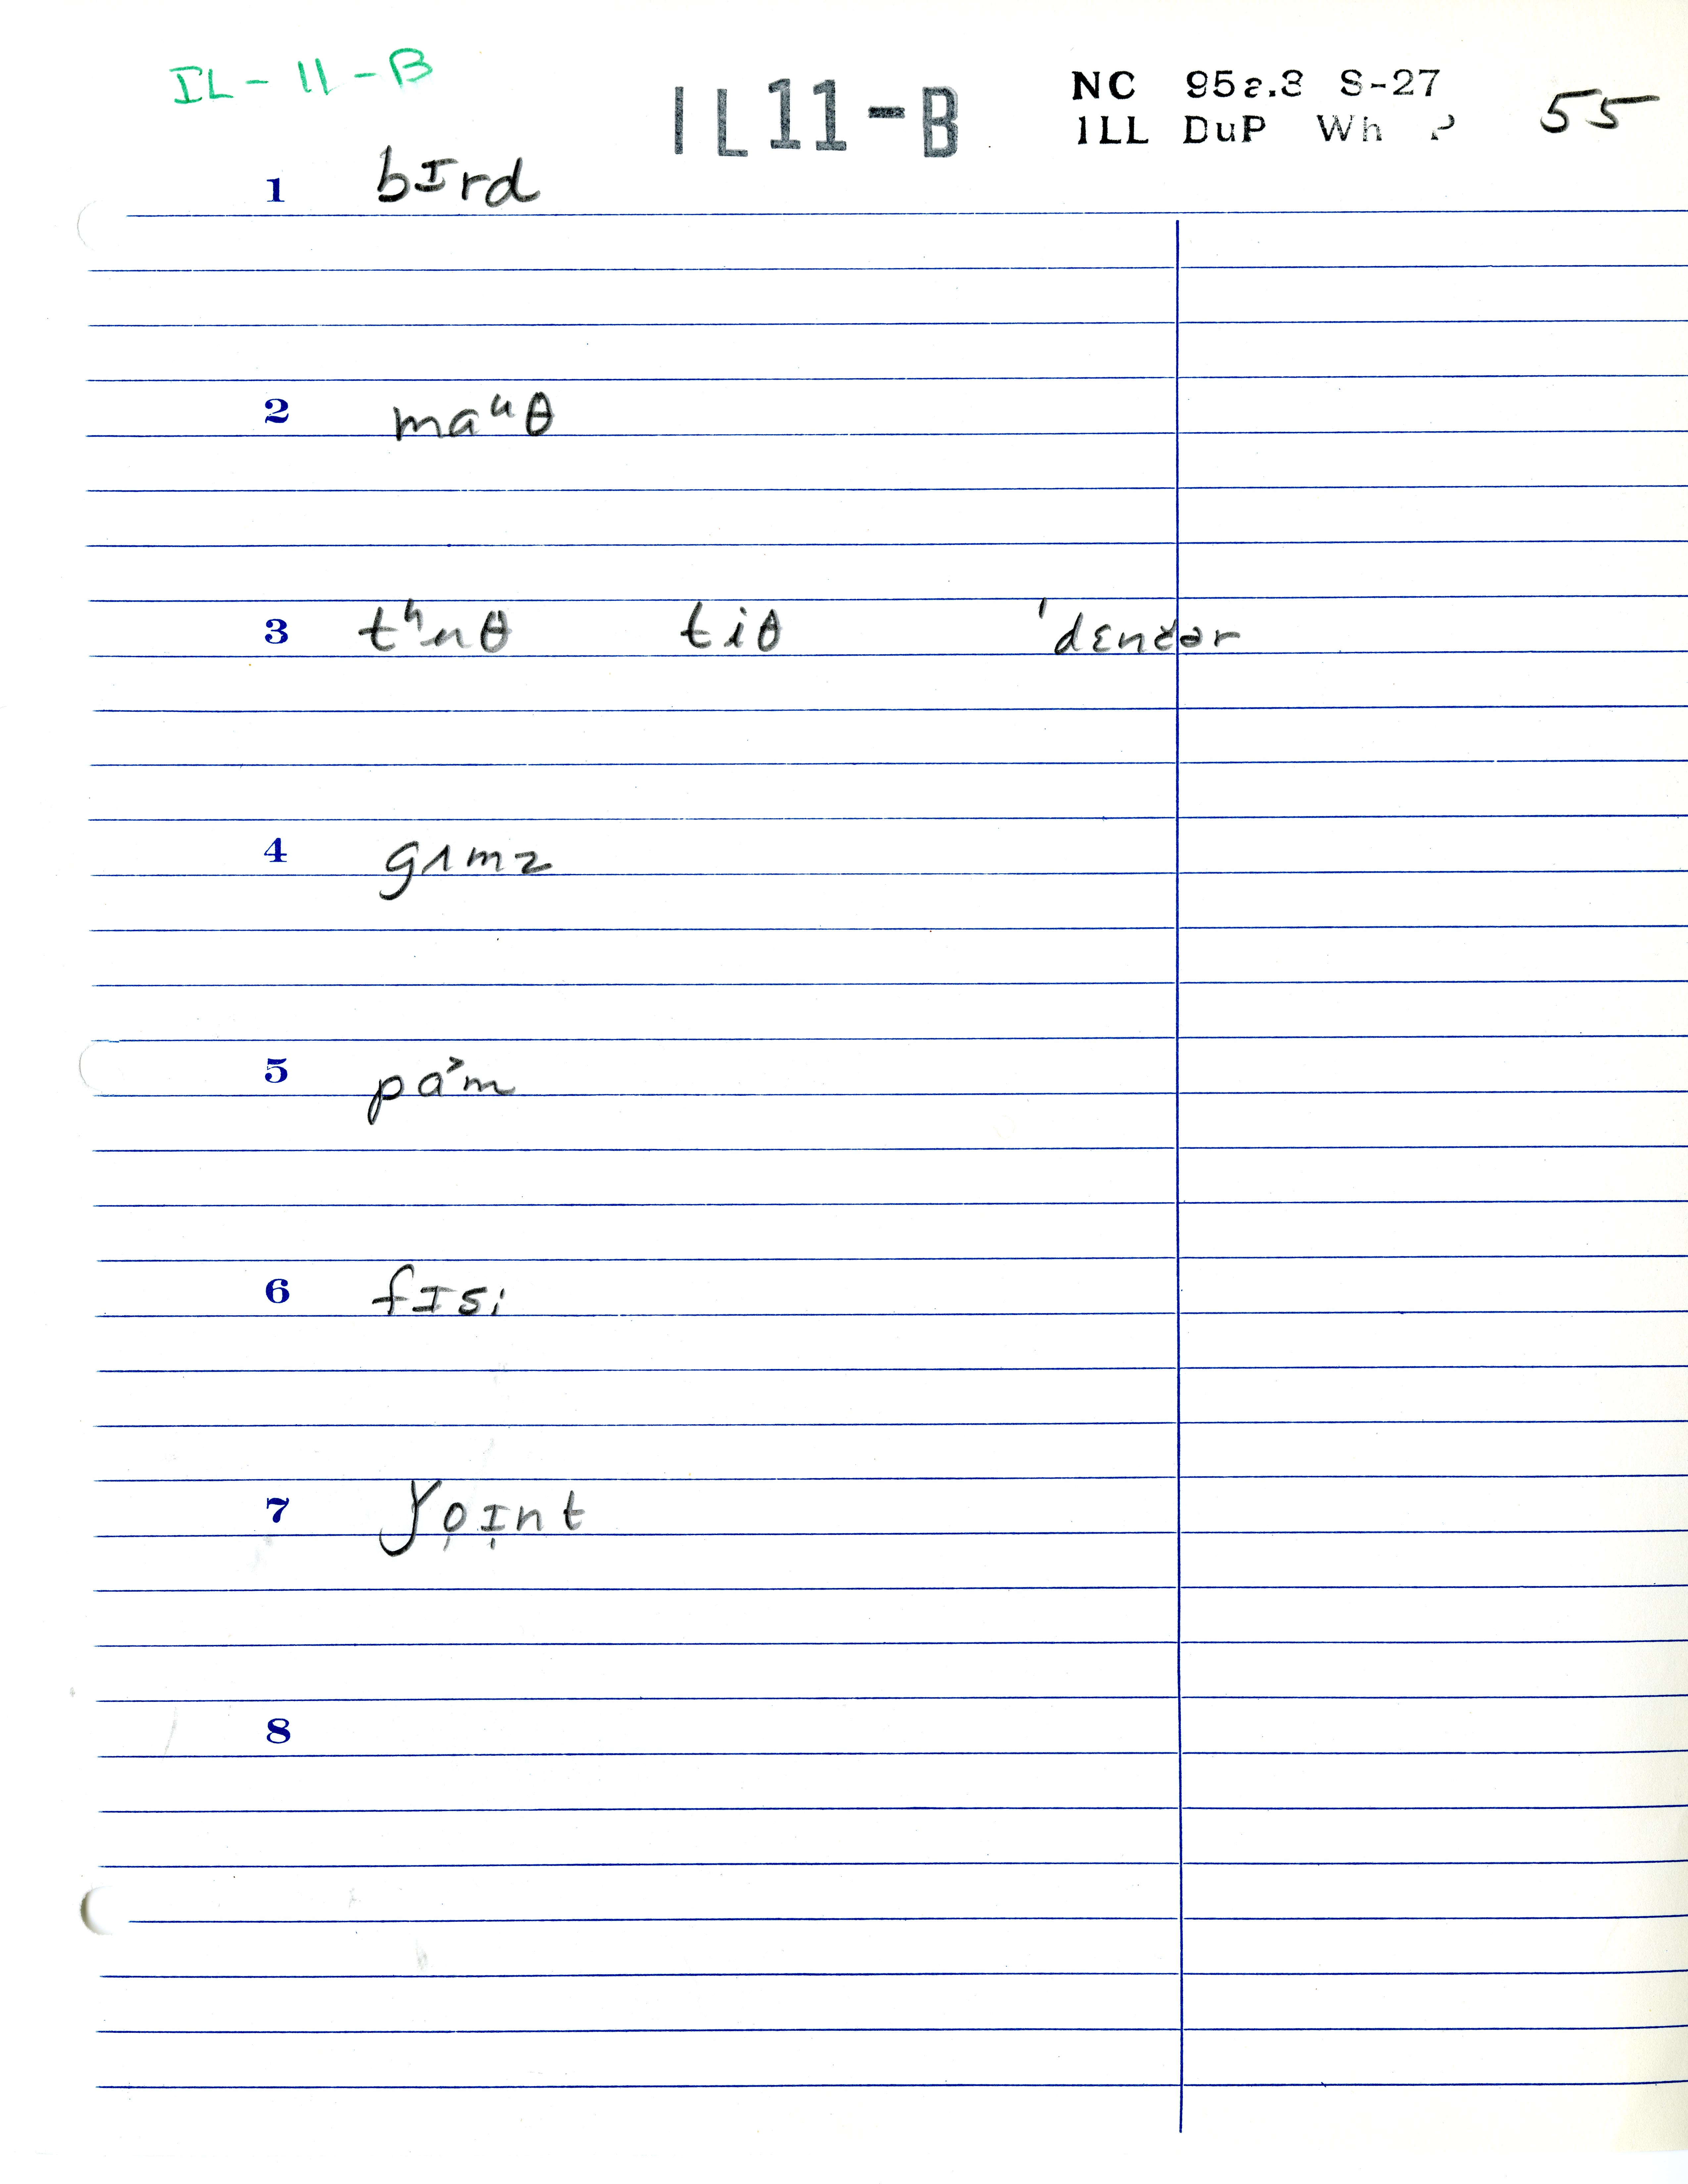 IL-11-B
IL11-B
NC 952.3 S-27
ILL DuP Wh P 55
1 bIrd
2 maᵘθ
3 tʰuθ tiθ 'denčər
4 gʌmz
5 pa˃m
6 fIsi
7 ǰo̩I̩nt
8